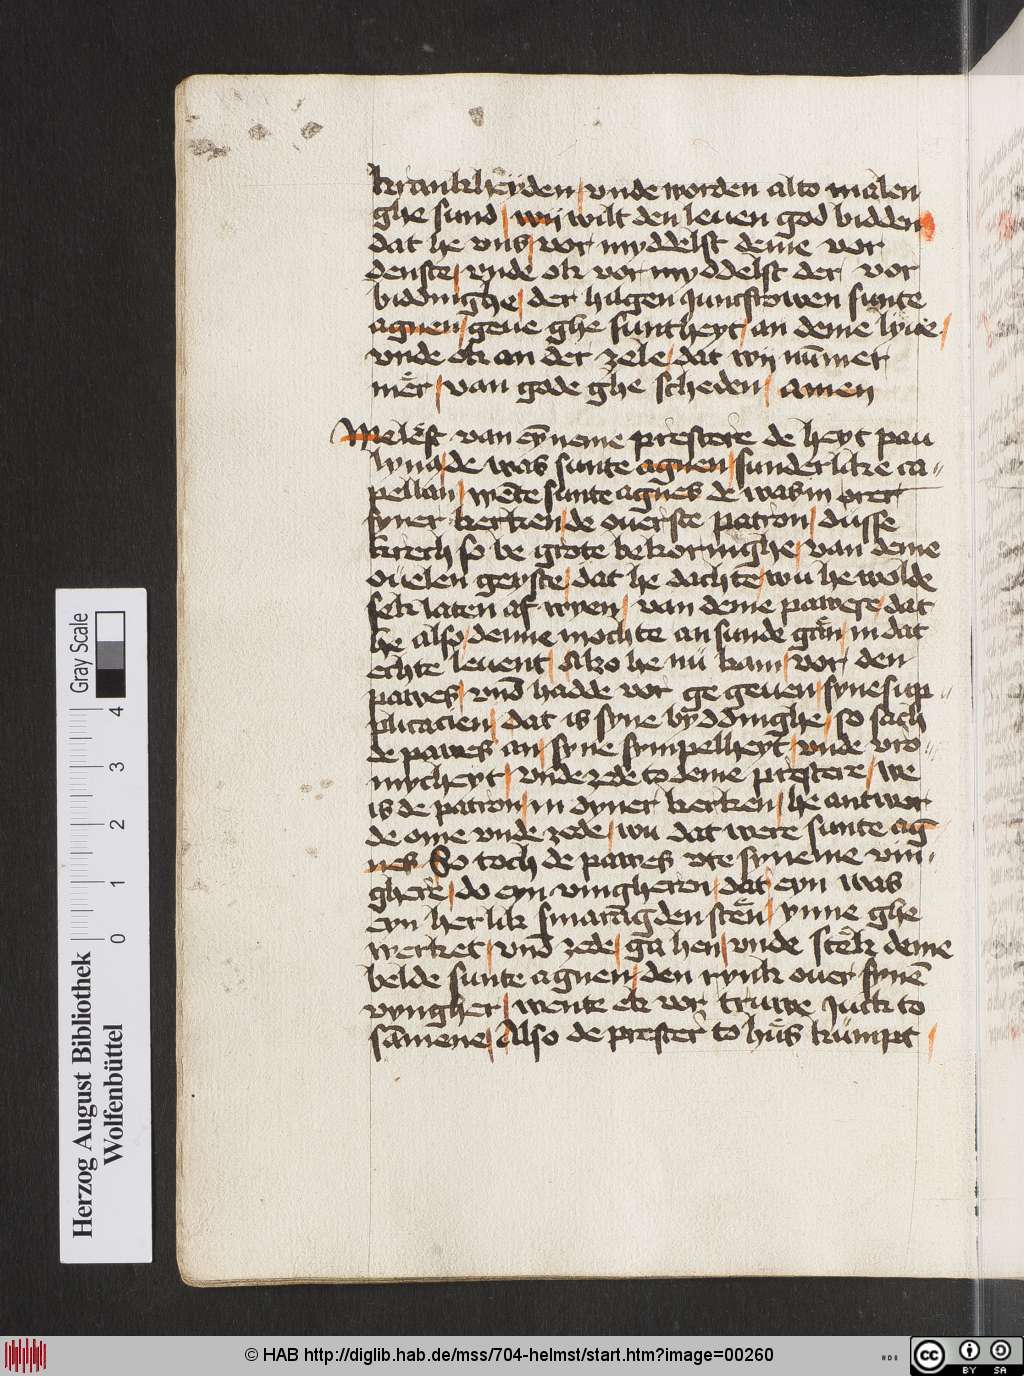 krankheyden / vnde worden alto malen
ghe sund / wij wilt den leuen god bidden
dat he vns / vor myddelst deme vor
denste / vnde ok vor myddelst der vor
biddinghe / der hilgen Juncfrowen sunte
agnen / geue ghe suntheyt / an deme lyue /
vnde ok an der zele / dat wij nūmer
mer / van gode ghe scheden / amen
Me lest van eyneme prestere de heyt pau
lyna / de was sunte agnen / sunderlike ca„
pellan / wēte sunte agnes de was in erer
syner kerken / de ouerste patron / dusse
krech so be grote bekoringhe / van deme
ouelen geyste / dat he dachte / wu he wolde
sek laten af wyen / van deme pawese / dat
he also / denne mochte an sunde gan / in dat
echte leuent / Also he nu kam / vor den
pawes / vnd hadde vor ge geuen / syne sup„
plicacien / dat is syne byddinghe / so sach
de pawes an / syne sympelheyt / vnde vro„
mycheyt / vnde zede to deme prestere / we
is de patron / in dyner kerken / he antwor
de ome vnde zede / wu dat were sunte ag
nes So toch de pawes vte syneme vin„
ghere / do eyn vingheren / dat eyn was
eyn herlik smaragden sten / ynne ghe
werket / vnd zede / ga hen / vnde stek deme
belde sunte agnen / den rynk ouer synē
vyngher / wente ek vor truwe Juck to
samene / Also de prester to hus kumpt /
Gray Scale
0 1 2 3 4
Herzog August Bibliothek
Wolfenbüttel
© HAB http://diglib.hab.de/mss/704-helmst/start.htm?image=00260
cc BY SA